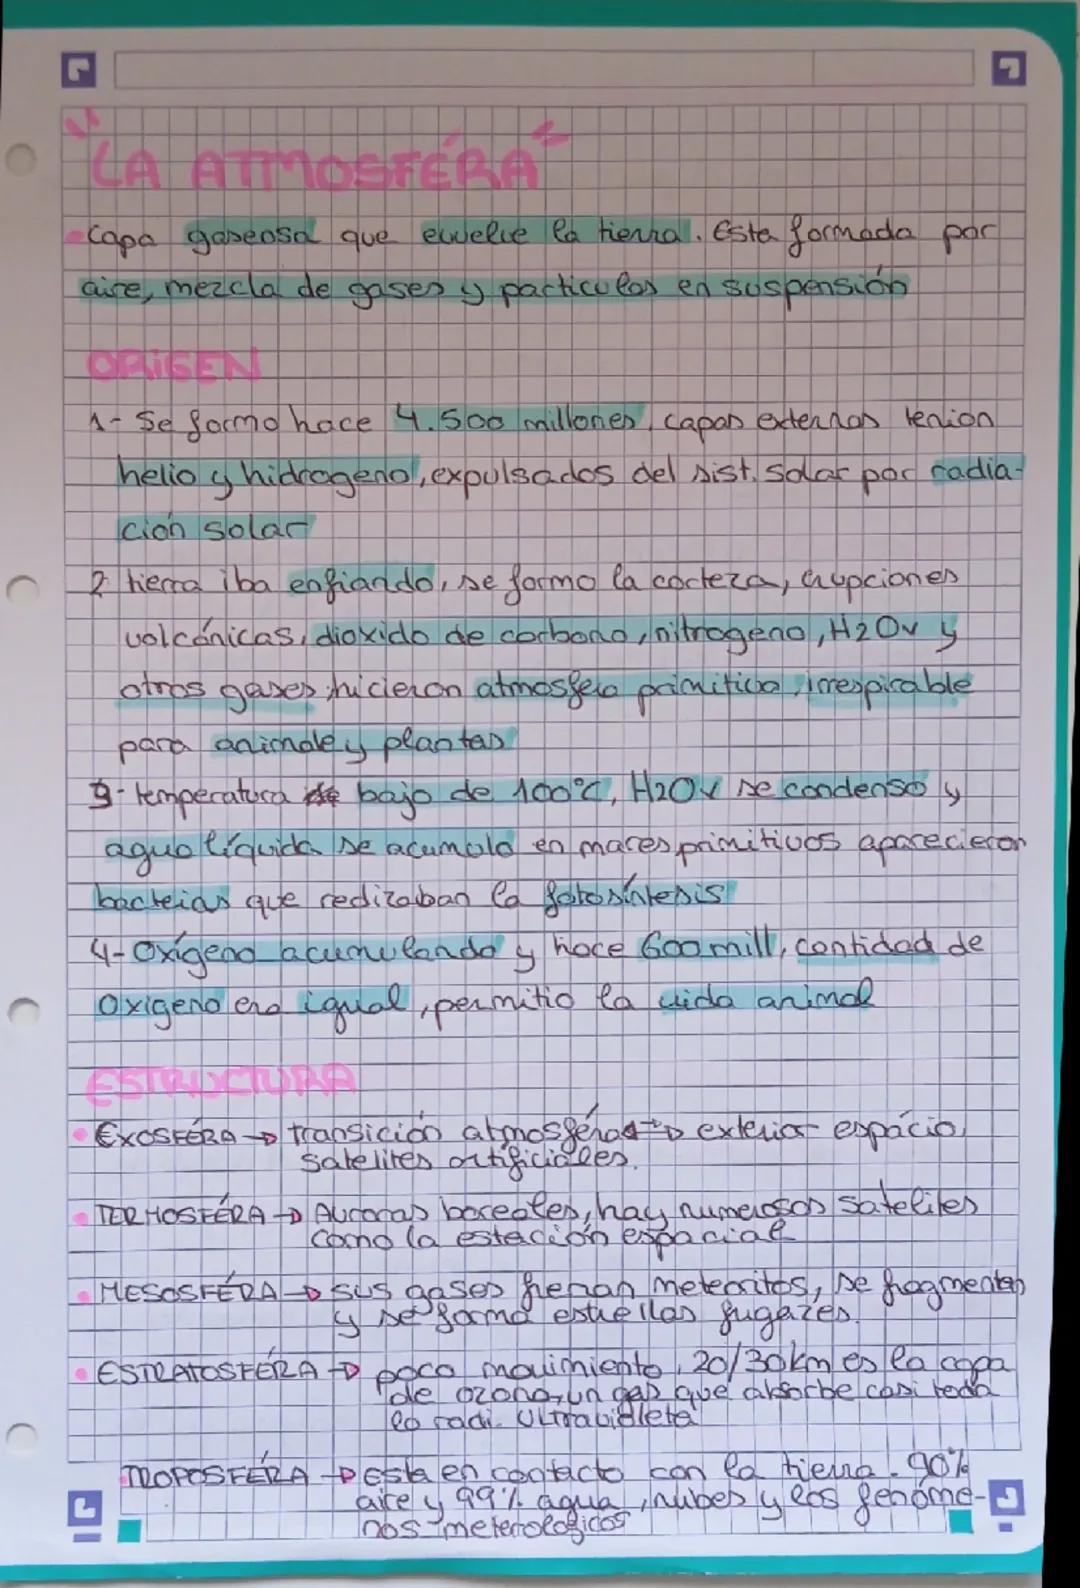 "LA ATMOSFÉRA"
Capa gaseosa que envuelve la tierra. Esta formada por
aire, mezcla de gases y particulas en suspensión
ORIGEN
1- Se formo hace 4.500 millones, capas externas tenian
helio y hidrogeno, expulsados del sist. solar por radia-
ción solar
2 tierra iba enfiando, se formo la corteza, erupciones
volcánicas, dioxido de carbono, nitrogeno, H2Ov y
otros gases hicieron atmosfera primitiva, irrespirable
para animale y plantas
3- temperatura bajo de 100°C, H2Ov se condenso y
agua líquida se acumulo en mares primitivos aparecieron
bacterias que realizaban la fotosíntesis
4- Oxígeno acumulando y hace 600 mill, cantidad de
oxigeno era igual, permitio la vida animal
ESTRUCTURA
EXOSFÉRA → transición atmosféra → exterior espácio,
satelites artificiales.
TERMOSFÉRA → Auroras boreales, hay numerosos satelites
como la estación espacial
MESOSFÉRA → sus gases frenan meteoritos, se fragmentan
y se forma estrellas fugazes.
ESTRATOSFÉRA → poco movimiento, 20/30km es la capa
de ozono, un gas que absorbe casi toda
la radi. ultravioleta
TROPOSFÉRA → Esta en contacto con la tierra. 90%
aire y 99% agua, nubes y los fenóme-
nos meterologicos